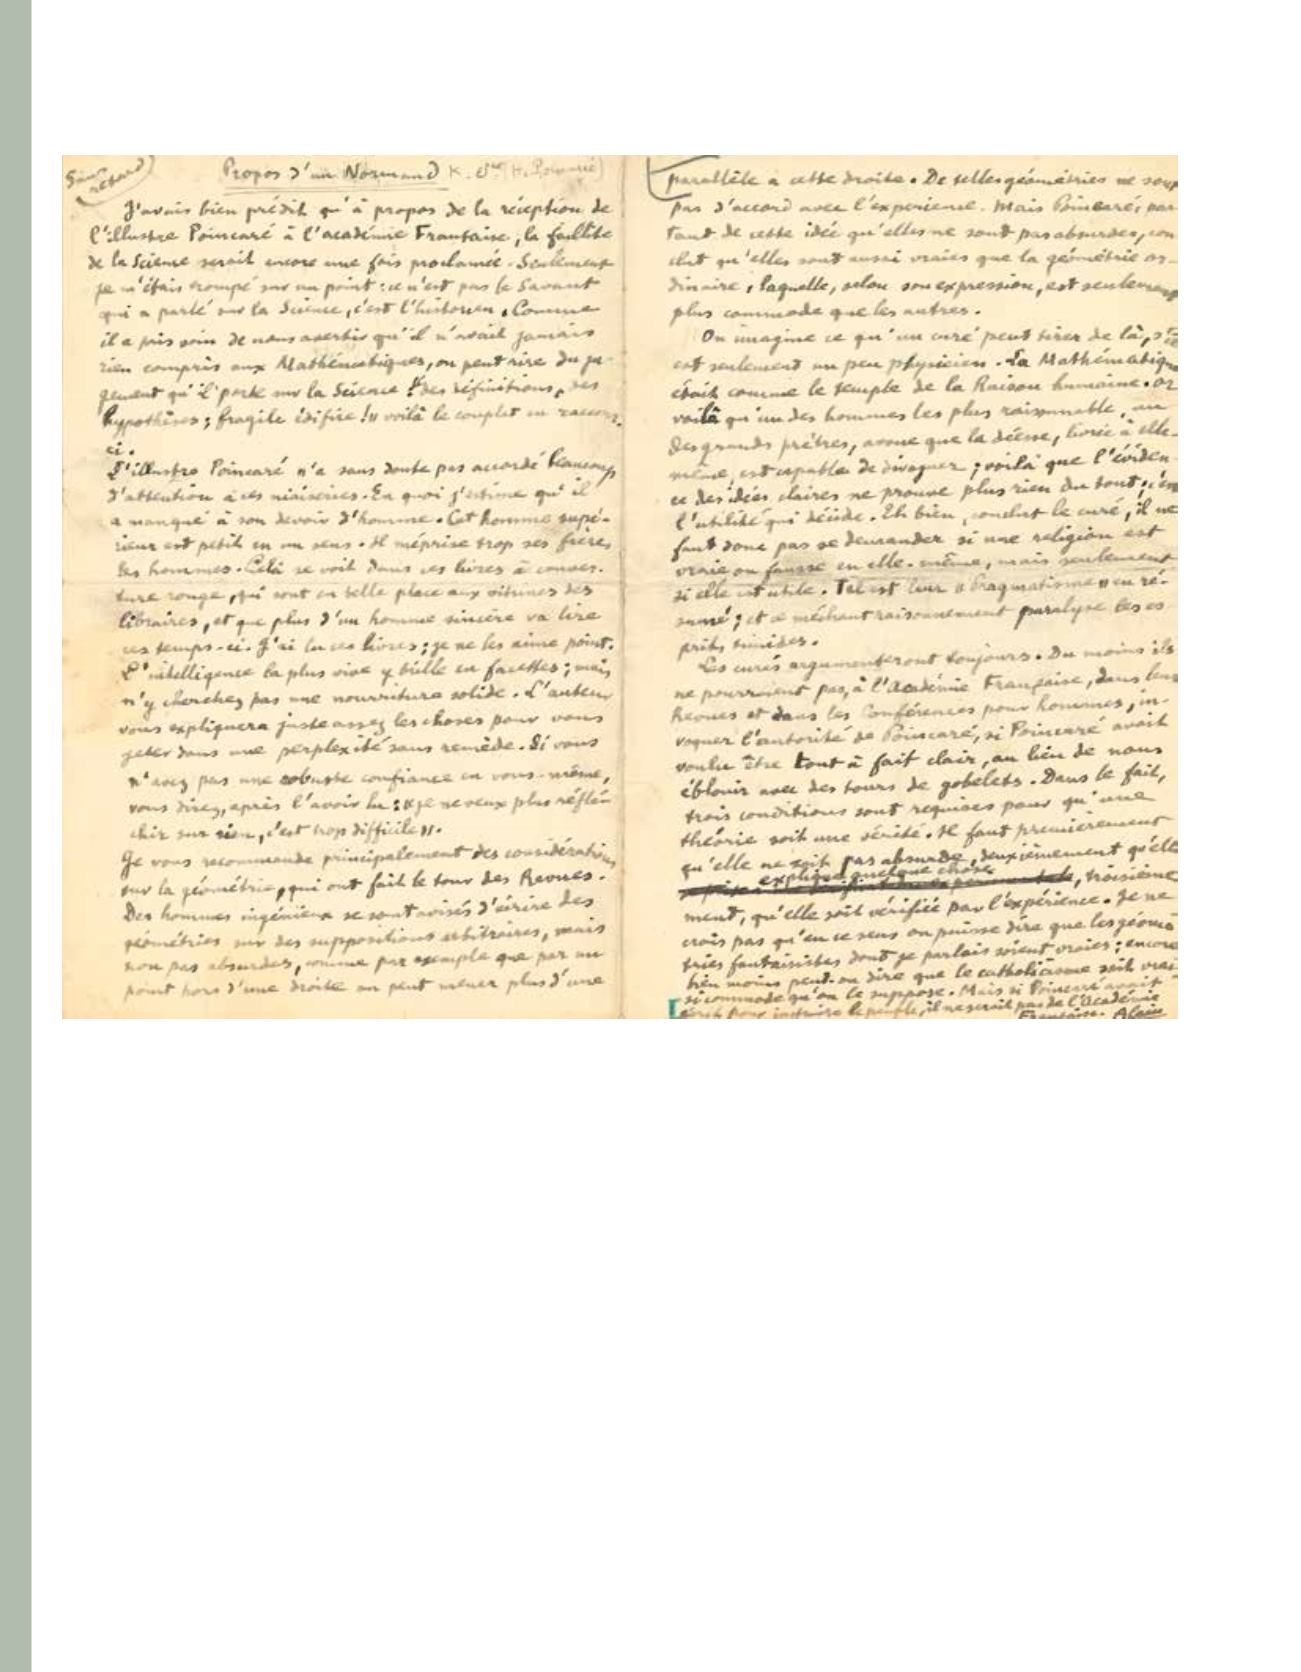 Sans
retard
Propos d'un Normand K. (H. Poincaré)
J'avais bien prédit qu'à propos de la réception de
l'illustre Poincaré à l'académie Française, la faillite
de la Science serait encore une fois proclamée. Seulement
je m'étais trompé sur un point : ce n'est pas le Savant
qui a parlé sur la Science, c'est l'historien. Comme
il a pris soin de nous avertir qu'il n'avait jamais
rien compris aux Mathématiques, on peut rire du ju-
gement qu'il porte sur la Science « des définitions, des
hypothèses ; fragile édifice ! » voilà le couplet en raccour-
ci.
L'illustre Poincaré n'a sans doute pas accordé beaucoup
d'attention à ces niaiseries. En quoi j'estime qu'il
a manqué à son devoir d'homme. Cet homme supé-
rieur est petit en un sens. Il méprise trop ses frères
les hommes. Celà se voit dans ces livres à couver-
ture rouge, qui sont en belle place aux vitrines des
libraires, et que plus d'un homme sincère va lire
ces temps-ci. J'ai lu ces livres ; je ne les aime point.
L'intelligence la plus vive y brille en facettes ; mais
n'y cherchez pas une nourriture solide. L'auteur
vous expliquera juste assez les choses pour vous
jeter dans une perplexité sans remède. Si vous
n'avez pas une robuste confiance en vous-même,
vous direz, après l'avoir lu : « je ne veux plus réflé-
chir sur rien, c'est trop difficile ».
Je vous recommande principalement des considérations
sur la géométrie, qui ont fait le tour des Revues.
Des hommes ingénieux se sont avisés d'écrire des
géométries sur des suppositions arbitraires, mais
non pas absurdes, comme par exemple que par un
point hors d'une droite on peut mener plus d'une
parallèle à cette droite. De telles géométries ne sont
pas d'accord avec l'expérience. Mais Poincaré, par-
tant de cette idée qu'elles ne sont pas absurdes, con-
clut qu'elles sont aussi vraies que la géométrie or-
dinaire, laquelle, selon son expression, est seulement
plus commode que les autres.
On imagine ce qu'un curé peut tirer de là, s'il
est seulement un peu physicien. La Mathématique
était comme le temple de la Raison humaine. Or
voilà qu'un des hommes les plus raisonnable, un
des grands prêtres, avoue que la déesse, livrée à elle-
même, est capable de divaguer ; voilà que l'éviden-
ce des idées claires ne prouve plus rien du tout ; c'est
l'utilité qui décide. Eh bien, conclut le curé, il ne
faut donc pas se demander si une religion est
vraie ou fausse en elle-même, mais seulement
si elle est utile. Tel est leur « Pragmatisme » en ré-
sumé ; et ce méchant raisonnement paralyse les es
prits timides.
Les curés argumenteront toujours. Du moins ils
ne pourraient pas, à l'Académie Française, dans leurs
Revues et dans les Conférences pour hommes, in-
voquer l'autorité de Poincaré, si Poincaré avait
voulu être tout à fait clair, au lieu de nous
éblouir avec des tours de gobelets. Dans le fait,
trois conditions sont requises pour qu'une
théorie soit une vérité. Il faut premièrement
qu'elle ne soit pas absurde, deuxièmement qu'elle
explique quelque chose
, troisième
ment, qu'elle soit vérifiée par l'expérience. Je ne
crois pas qu'en ce sens on puisse dire que les géomé
tries fantaisistes dont je parlais soient vraies ; encore
bien moins peut-on dire que le catholicisme soit vrai
si commode qu'on le suppose. Mais si Poincaré avait
écrit pour instruire le peuple, il ne serait pas de l'Académie
Française. Alain